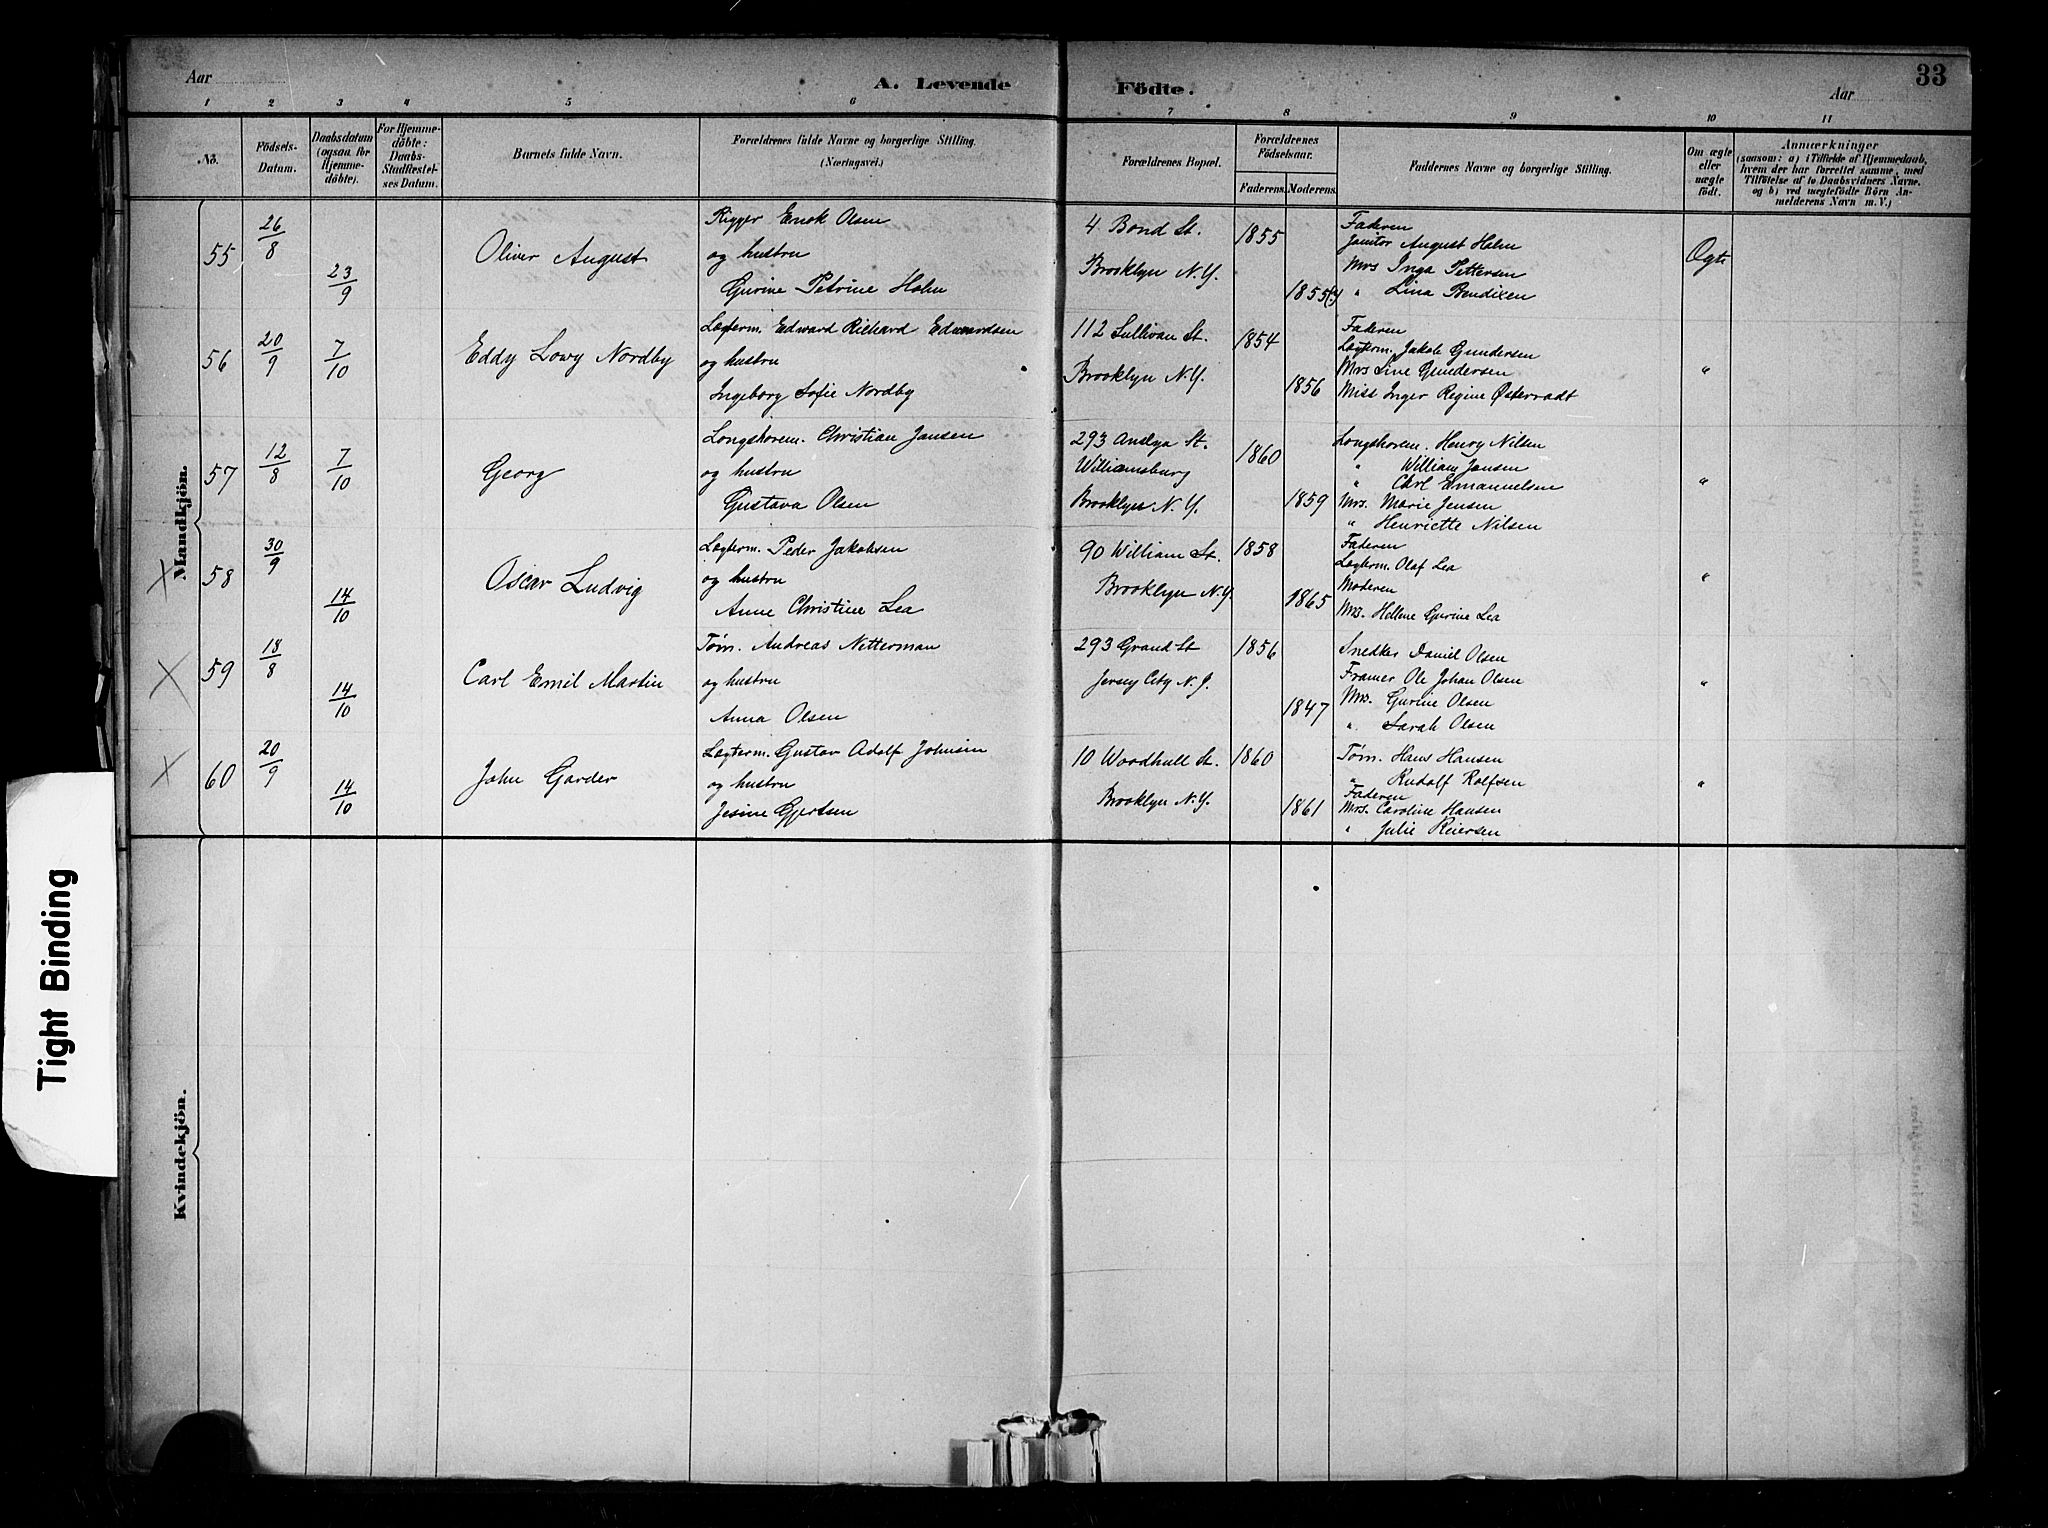 33
Aar
A. Levende
Födte.
Aar
1 2 3 4 5 6 7 8 9 10 11
No.
Födsels-
Datum.
Daabsdatum
(ogsaa for
Hjemme-
döbte).
For Hjemme-
döbte:
Daabs-
Stadfæstel-
ses Datum.
Barnets fulde Navn.
Forældrenes fulde Navne og borgerlige Stilling.
(Næringsvei.)
Forældrenes Bopæl.
Forældrenes
Födselsaar.
Faderens.
Moderens.
Faddernes Navne og borgerlige Stilling.
Om ægte
eller
uægte
födt.
Anmærkninger
(saasom: a) i Tilfælde af Hjemmedaab,
hvem der har forrettet samme, med
Tilföielse af to Daabsvidners Navne,
og b) ved uægtefödte Börn An-
melderens Navn m. V.)
Mandkjön.
55
26/8
23/9
Oliver August
Rigger Enok Olsen
og hustru
Gurine Petrine Holm
4 Bond St.
Brooklyn N.Y.
1855
1855(?)
Faderen
Janitor August Holm
Mrs Inga Pettersen
" Lina Bendixen
Ægte
56
20/9
7/10
Eddy Lowy Nordby
Lagterm. Edward Richard Edwardsen
og hustru
Ingeborg Sofie Nordby
112 Sullivan St.
Brooklyn N.Y.
1854
1856
Faderen
Lagterm. Jakob Gundersen
Mrs Line Gundersen
Miss Inger Regine
"
57
12/8
7/10
Georg
Longshorem. Christian Jansen
og hustru
Gustava Olsen
293 St.
Williamsburg
Brooklyn N.Y.
1860
1859
Longshorem. Henry Nilsen
" William Jansen
" Carl Emanuelsen
Mrs. Marie Jensen
" Henriette Nilsen
"
58
30/9
14/10
Oscar Ludvig
Lagterm. Peder Jakobsen
og hustru
Anne Christine Lea
90 William St.
Brooklyn N.Y.
1858
1865
Faderen
Lagterm. Olaf Lea
Moderen
Mrs. Hellene Gurine Lea
"
59
18/8
14/10
Carl Emil Martin
Tøm. Andreas Netterman
og hustru
Anna Olsen
293 Grand St
Jersey City N.J.
1856
1847
Snedker Daniel Olsen
Framer Ole Johan Olsen
Mrs. Gurine Olsen
" Sarah Olsen
"
60
20/9
14/10
John Garder
Lagterm. Gustav Adolf Johnsen
og hustru
Jesine Gjertsen
10 Woodhull St.
Brooklyn N.Y.
1860
1861
Tøm. Hans Hansen
" Rudolf Rolfsen
Faderen
Mrs. Caroline Hansen
" Julie Reiersen
"
Kvindekjön.
Tight Binding